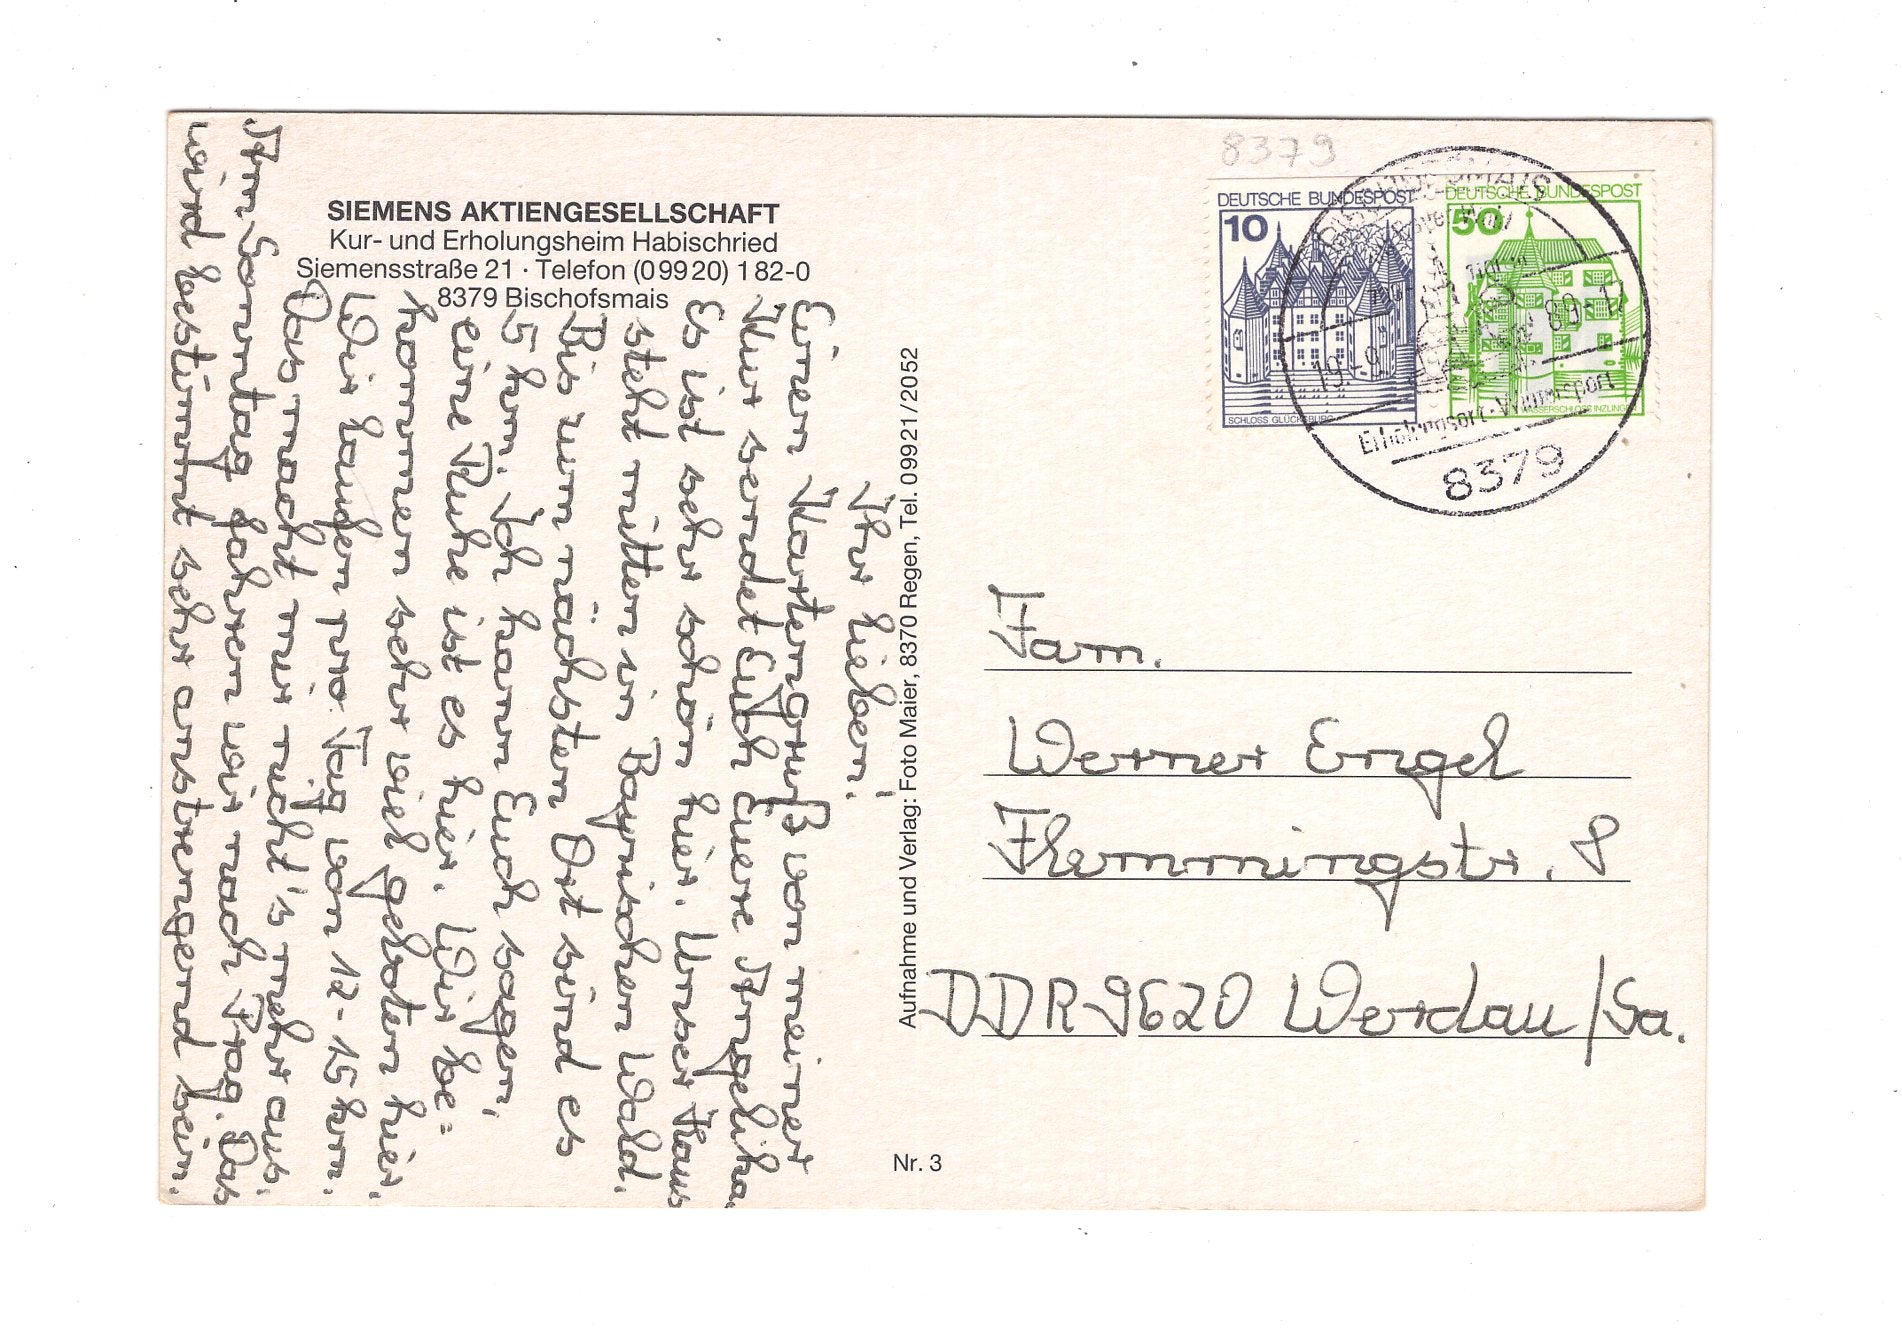 SIEMENS AKTIENGESELLSCHAFT
Kur- und Erholungsheim Habischried
Siemensstraße 21 · Telefon (09920) 182-0
8379 Bischofsmais
Ihr lieben!
Einen Kartengruß von meiner
Kur sendet Euch Euere Angelika
Es ist sehr schön hier. Unser Haus
steht mitten im Bayrischen Wald.
Bis zum nächsten Ort sind es
5 km. Ich kann Euch sagen,
eine Ruhe ist es hier. Wir be=
kommen sehr viel geboten hier.
Wir laufen pro Tag von 12-15 km.
Das macht mir nicht's mehr aus.
Am Sonntag fahren wir nach Prag. Das
wird bestimmt sehr anstrengend sein.
Aufnahme und Verlag: Foto Maier, 8370 Regen, Tel. 09921/2052
Nr. 3
8379
DEUTSCHE BUNDESPOST
10
SCHLOSS GLÜCKSBURG
DEUTSCHE BUNDESPOST
50
WASSERSCHLOSS INZLINGEN
BISCHOFSMAIS
19.-9. 89-12
Erholungsort·Wintersport
8379
Fam.
Werner Engel
Flemmingstr. 8
DDR-9620 Werdau/Sa.